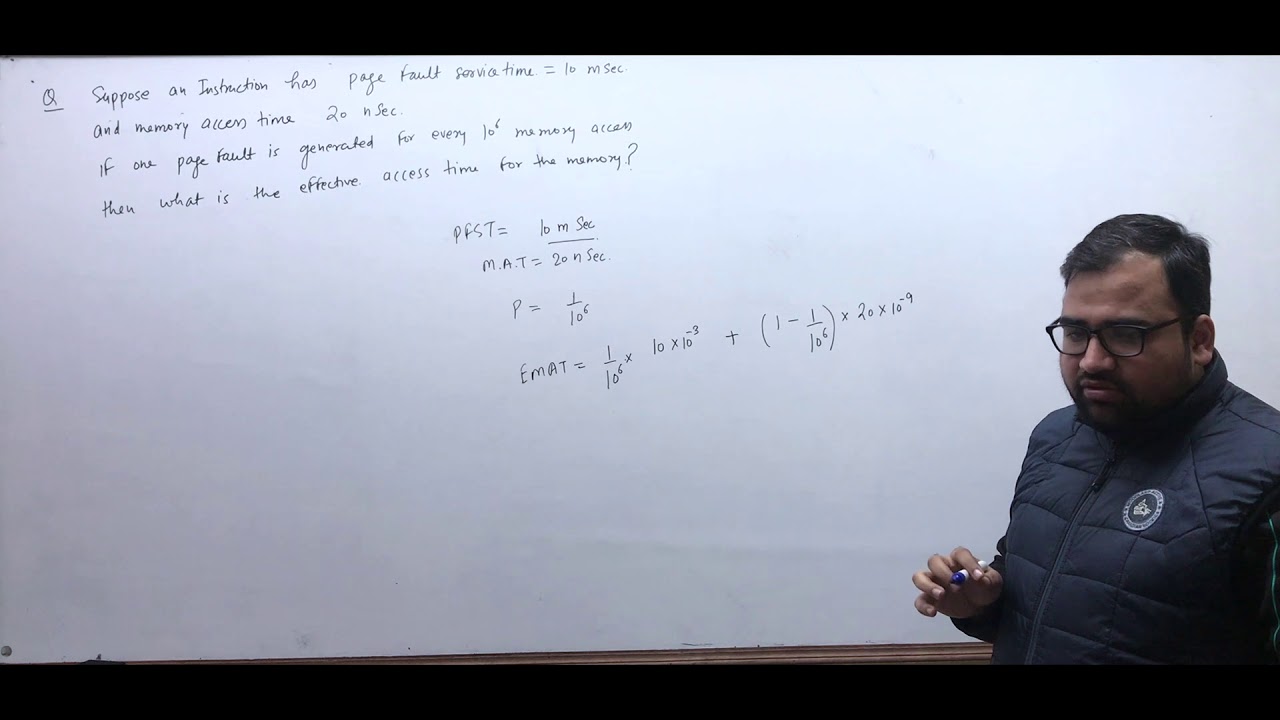 Q Suppose an Instruction has page fault service time = 10 msec.
and memory access time 20 nSec.
If one page fault is generated for every 10⁶ memory access
then what is the effective access time for the memory?
PFST = 10 m Sec
M.A.T = 20 n Sec.
P = 1/10⁶
EMAT = 1/10⁶ × 10 × 10⁻³ + (1 - 1/10⁶) × 20 × 10⁻⁹